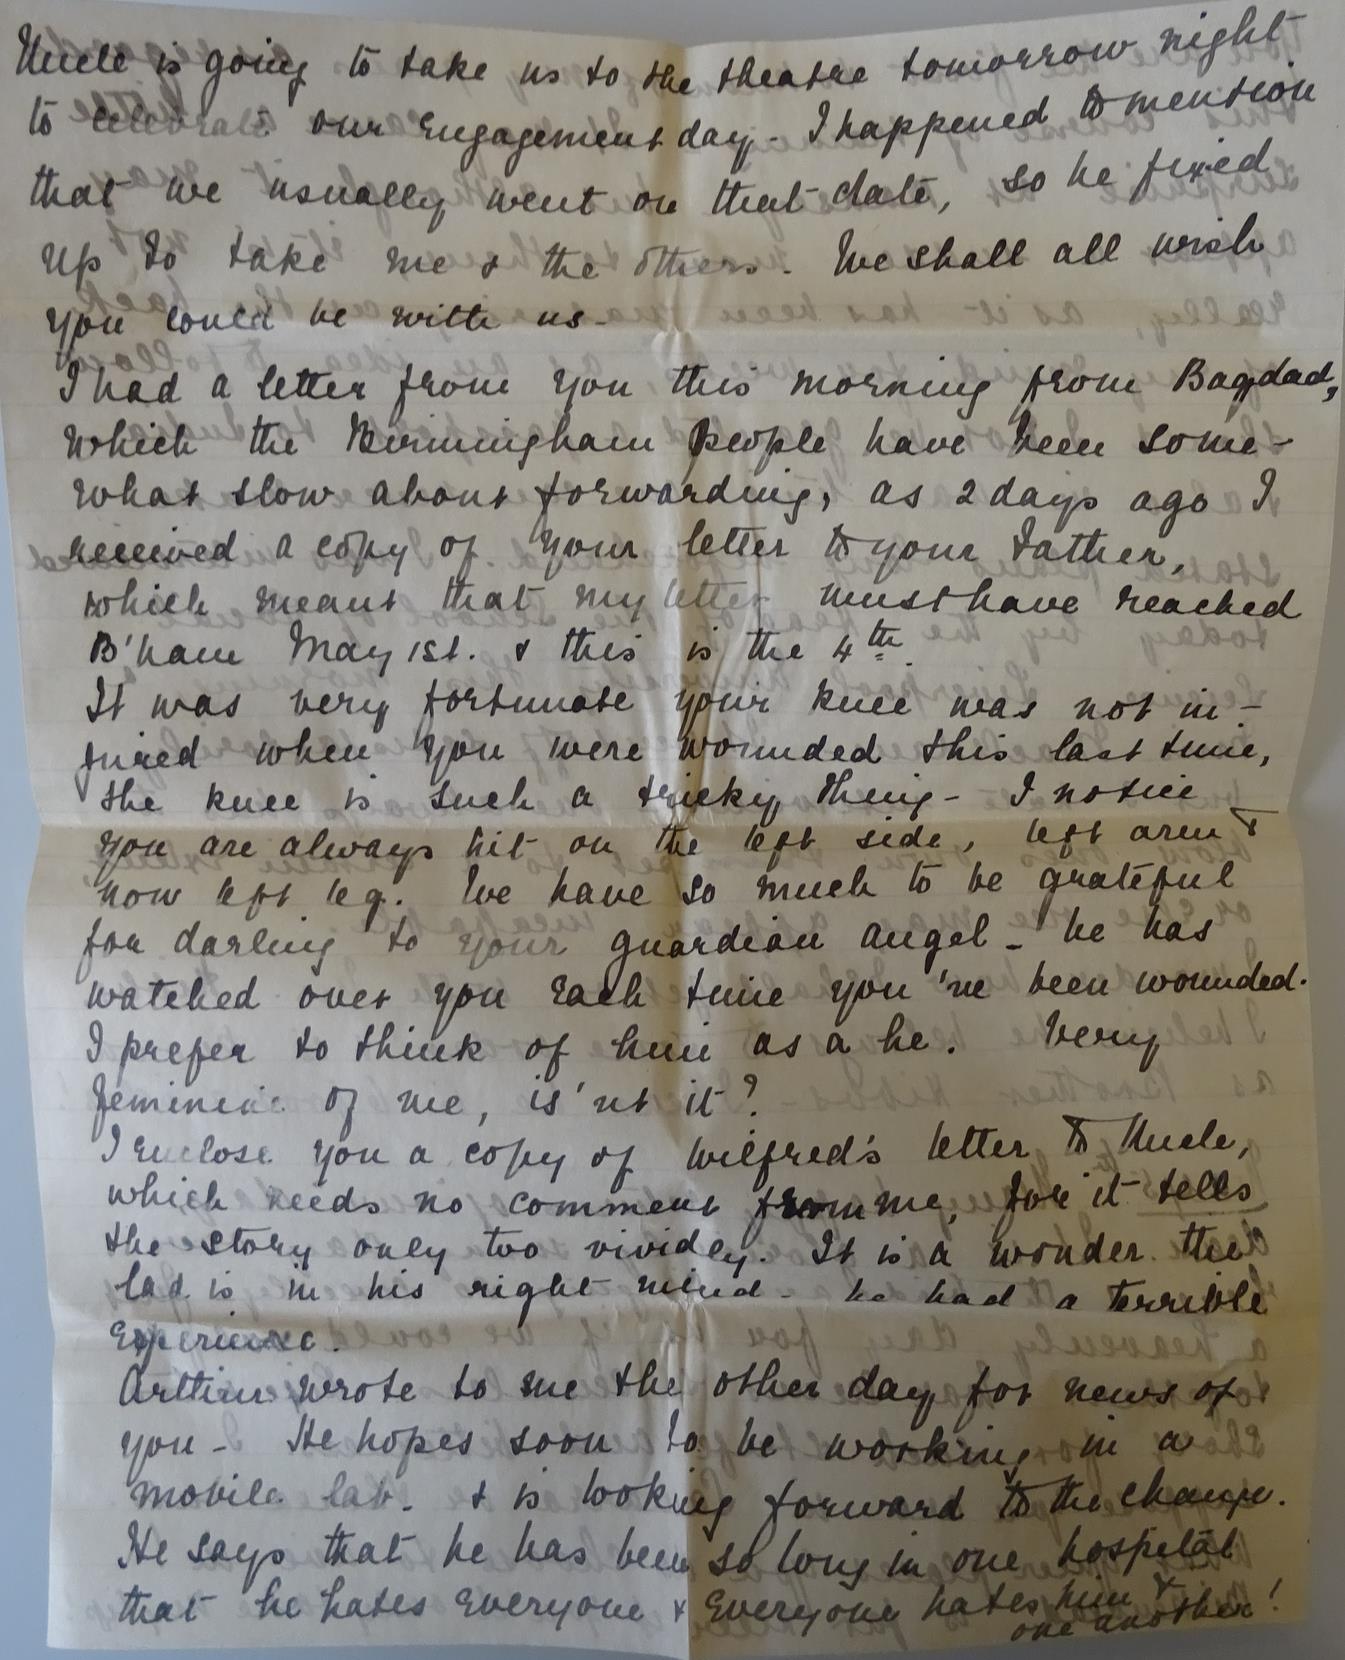 Uncle is going to take us to the theatre tomorrow night
to celebrate our Engagement day - I happened to mention
that we usually went on that date, so he fixed
up to take me & the others. We shall all wish
you could be with us -
I had a letter from you this morning from Bagdad,
which the Birmingham people have been some-
what slow about forwarding, as 2 days ago I
received a copy of your letter to your Father,
which meant that my letter must have reached
B'ham May 1st. & this is the 4th.
It was very fortunate your knee was not in-
jured when you were wounded this last time,
the knee is such a tricky thing - I notice
you are always hit on the left side, left arm &
now left leg. We have so much to be grateful
for darling to your guardian angel - he has
watched over you each time you 've been wounded.
I prefer to think of him as a he. Very
feminine of me, is'nt it?
I enclose you a copy of Wilfred's letter to Uncle,
which needs no comment from me, for it tells
the story only too vividly. It is a wonder the
lad is in his right mind - he had a terrible
Experience.
Arthur wrote to me the other day for news of
you - He hopes soon to be working in a
mobile lab. & is looking forward to the change.
He says that he has been so long in one hospital
that he hates Everyone & Everyone hates him &
one another!